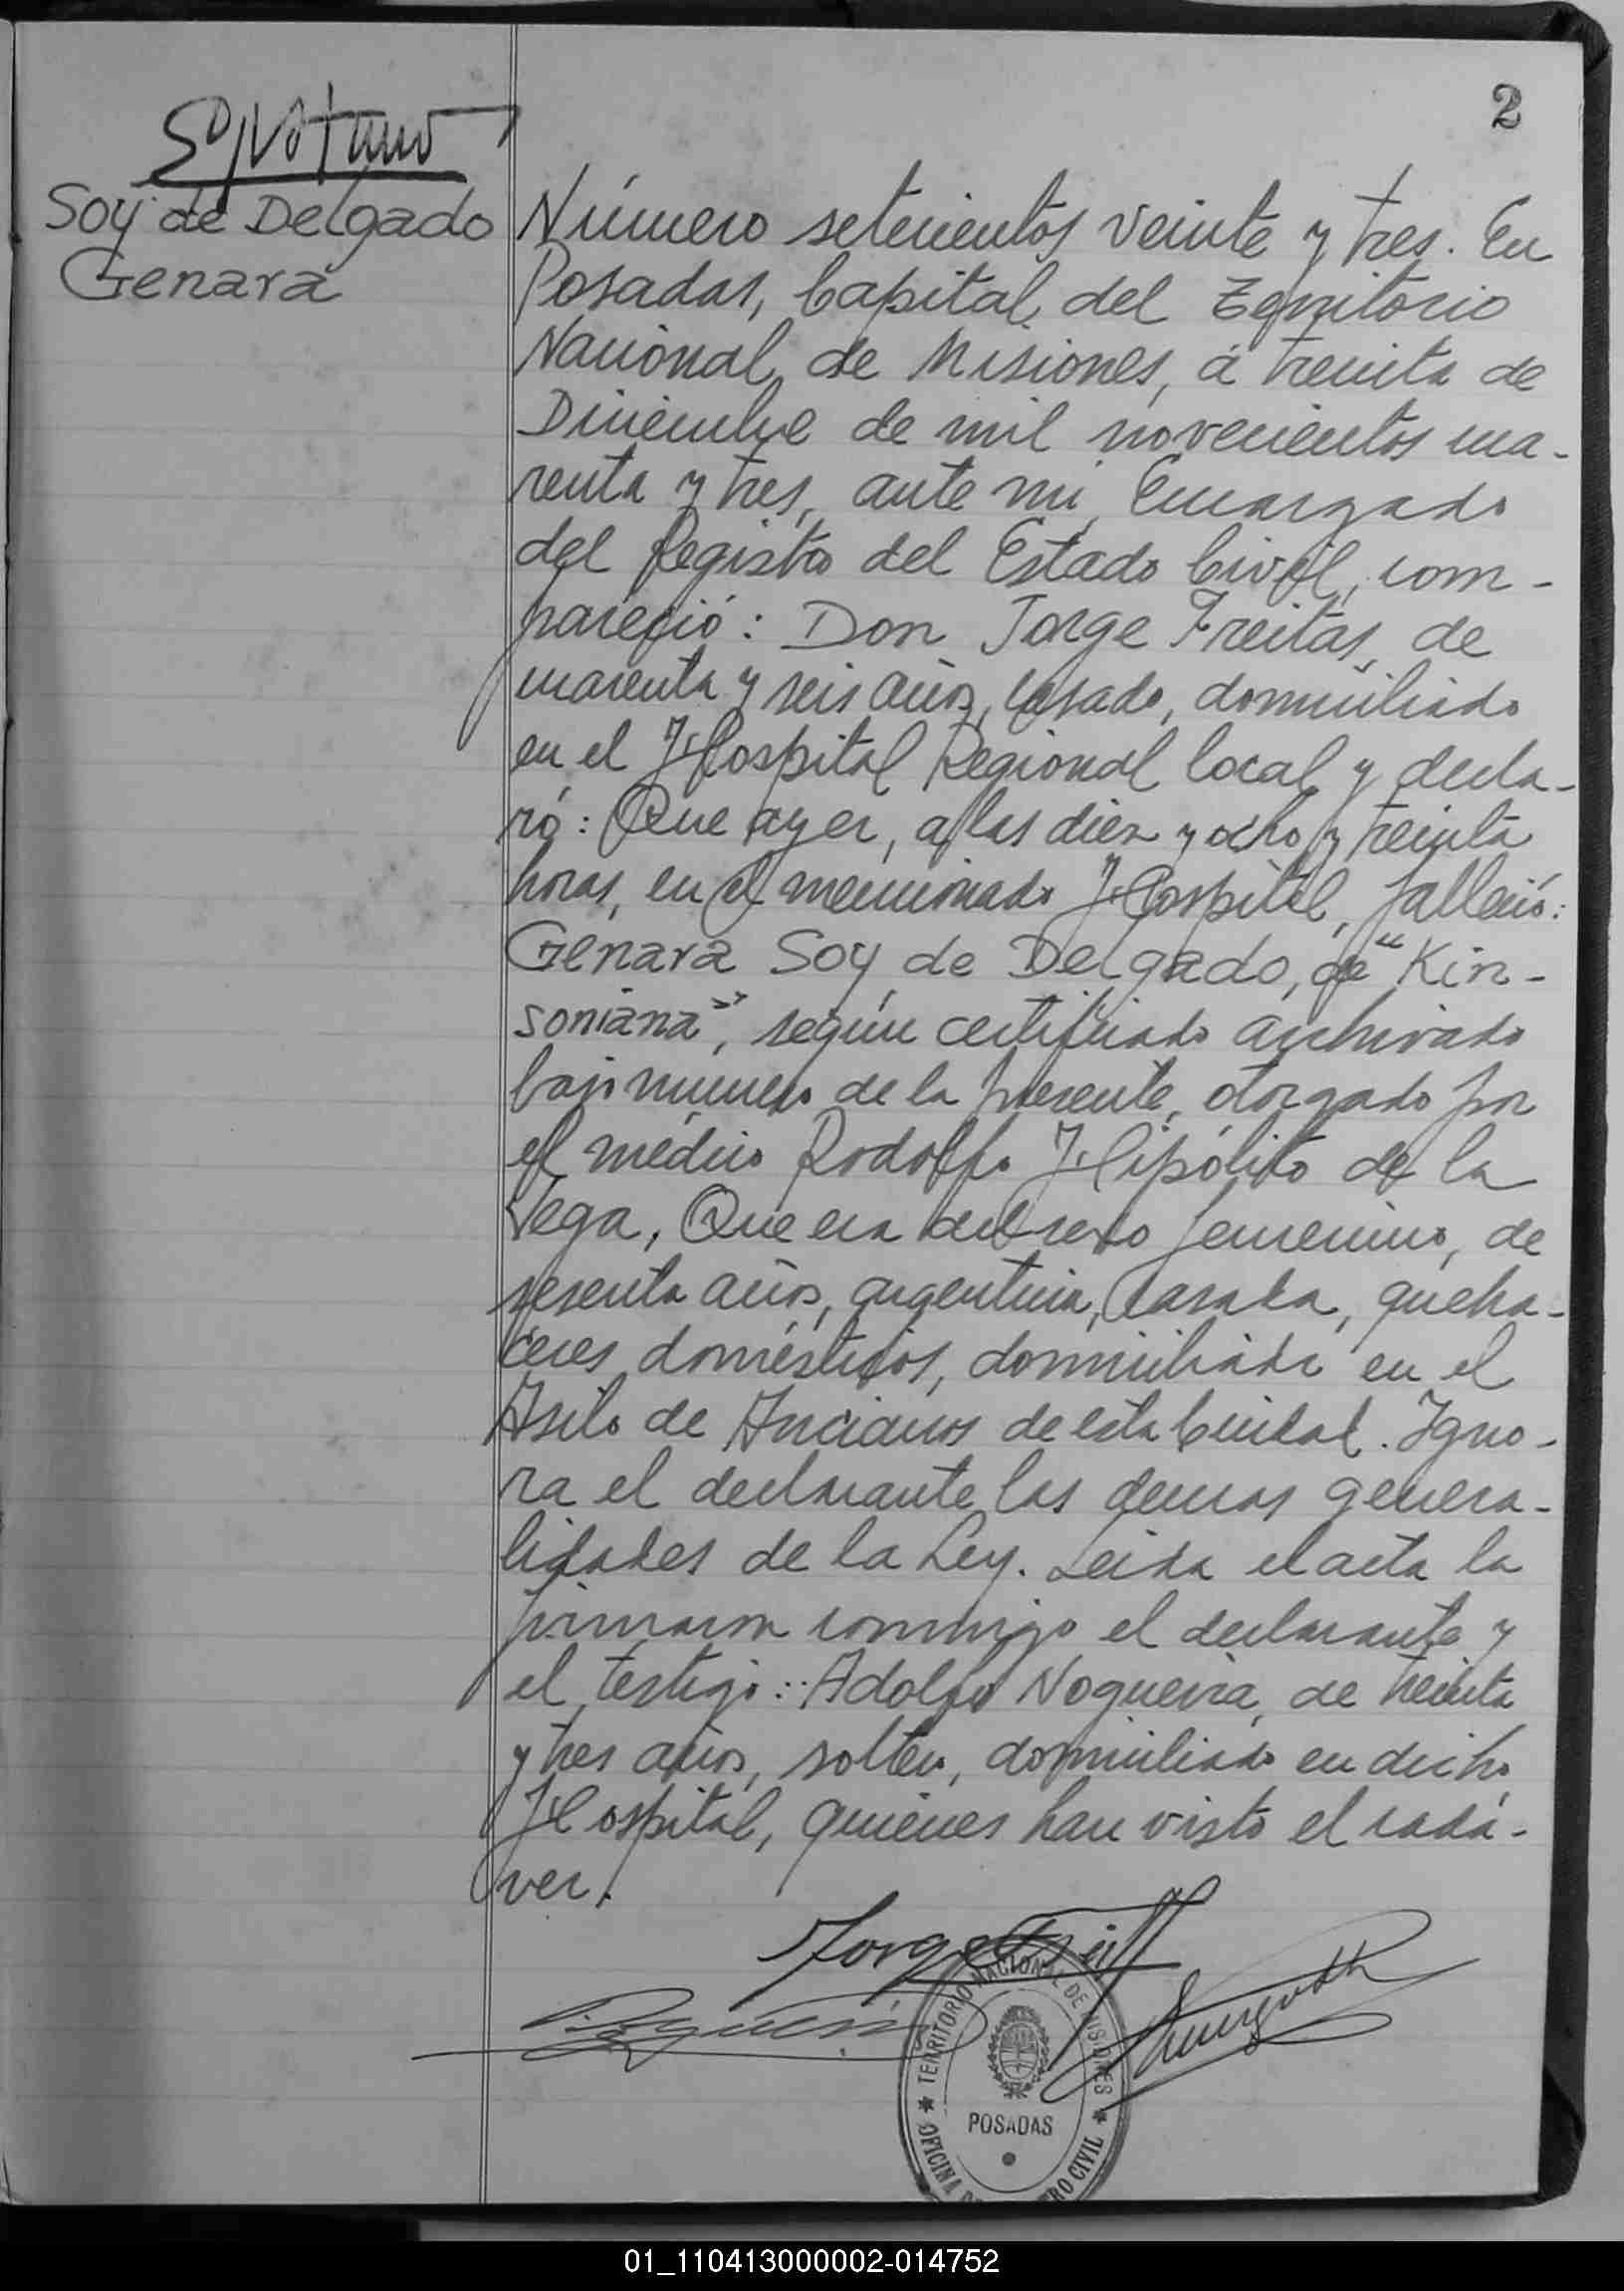 2
Soy de Delgado
Genara
Número setecientos veinte y tres. En
Posadas, Capital del Territorio
Nacional de Misiones, á treinta de
Diciembre de mil novecientos cua-
renta y tres, ante mi, Encargado
del Registro del Estado Civil, com-
pareció: Don Jorge Freitas, de
cuarenta y seis años, casado, domiciliado
en el Hospital Regional local y decla-
ró: Que ayer, a las diez y ocho y treinta
horas, en el mencionado Hospital, falleció:
Genara Soy de Delgado, de "Kin-
soniana", según certificado archivado
bajo numero de la presente, otorgado por
el médico Rodolfo Hipólito de la
Vega, Que era del sexo femenino, de
sesenta años, argentina, casada, queha-
ceres domésticos, domiciliada en el
Asilo de Ancianos de esta Ciudad. Igno-
ra el declarante las demas genera-
lidades de la Ley. Leida el acta la
firmaron conmigo el declarante y
el testigo: Adolfo Nogueira, de treinta
y tres años, soltero, domiciliado en dicho
Hospital, quienes han visto el cadá-
ver.
TERRITORIO NACIONAL DE MISIONES
POSADAS
01_110413000002-014752